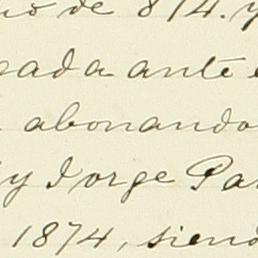 de 1874. y
ada ante
abonando
y Jorge Pa
1874, siendo